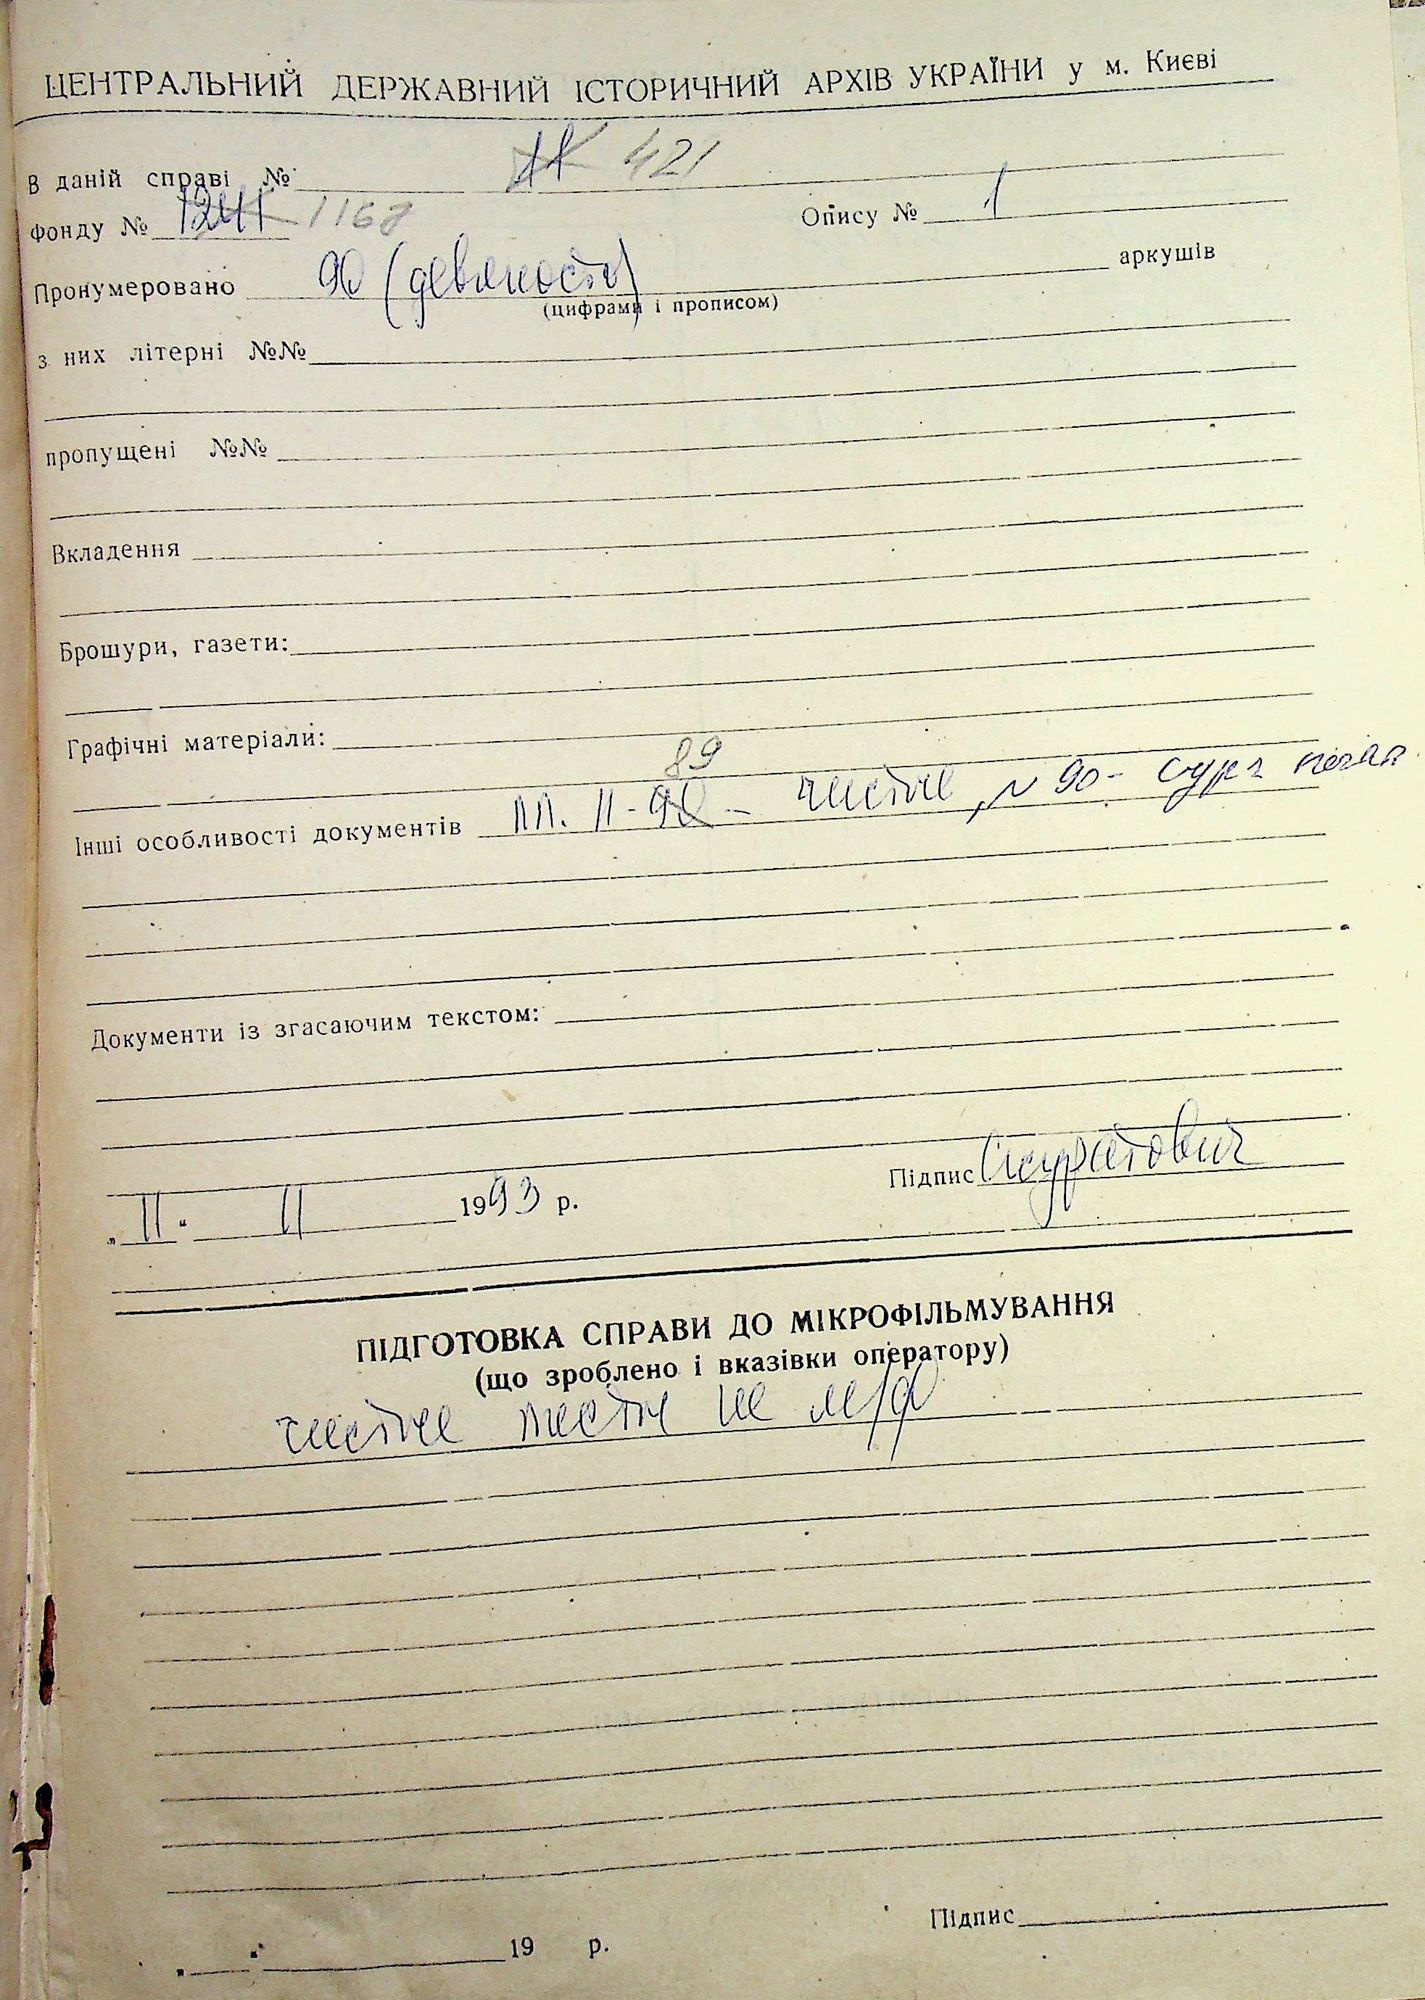 ЦЕНТРАЛЬНИЙ ДЕРЖАВНИЙ ІСТОРИЧНИЙ АРХІВ УКРАЇНИ у м. Києві
В даній справі № 11 421
Фонду № 1241 1167 Опису № 1
Пронумеровано 90 (девяносто) аркушів
(цифрами і прописом)
з них літерні №№
пропущені №№
Вкладення
Брошури, газети:
Графічні матеріали:
89
Інші особливості документів лл. 11-90 - чистые, л 90 - сург печат
Документи із згасаючим текстом:
Підпис
„11“ 11 1993 р.
ПІДГОТОВКА СПРАВИ ДО МІКРОФІЛЬМУВАННЯ
(що зроблено і вказівки оператору)
чистые листы не м/ф
Підпис
„ “ 19 р.